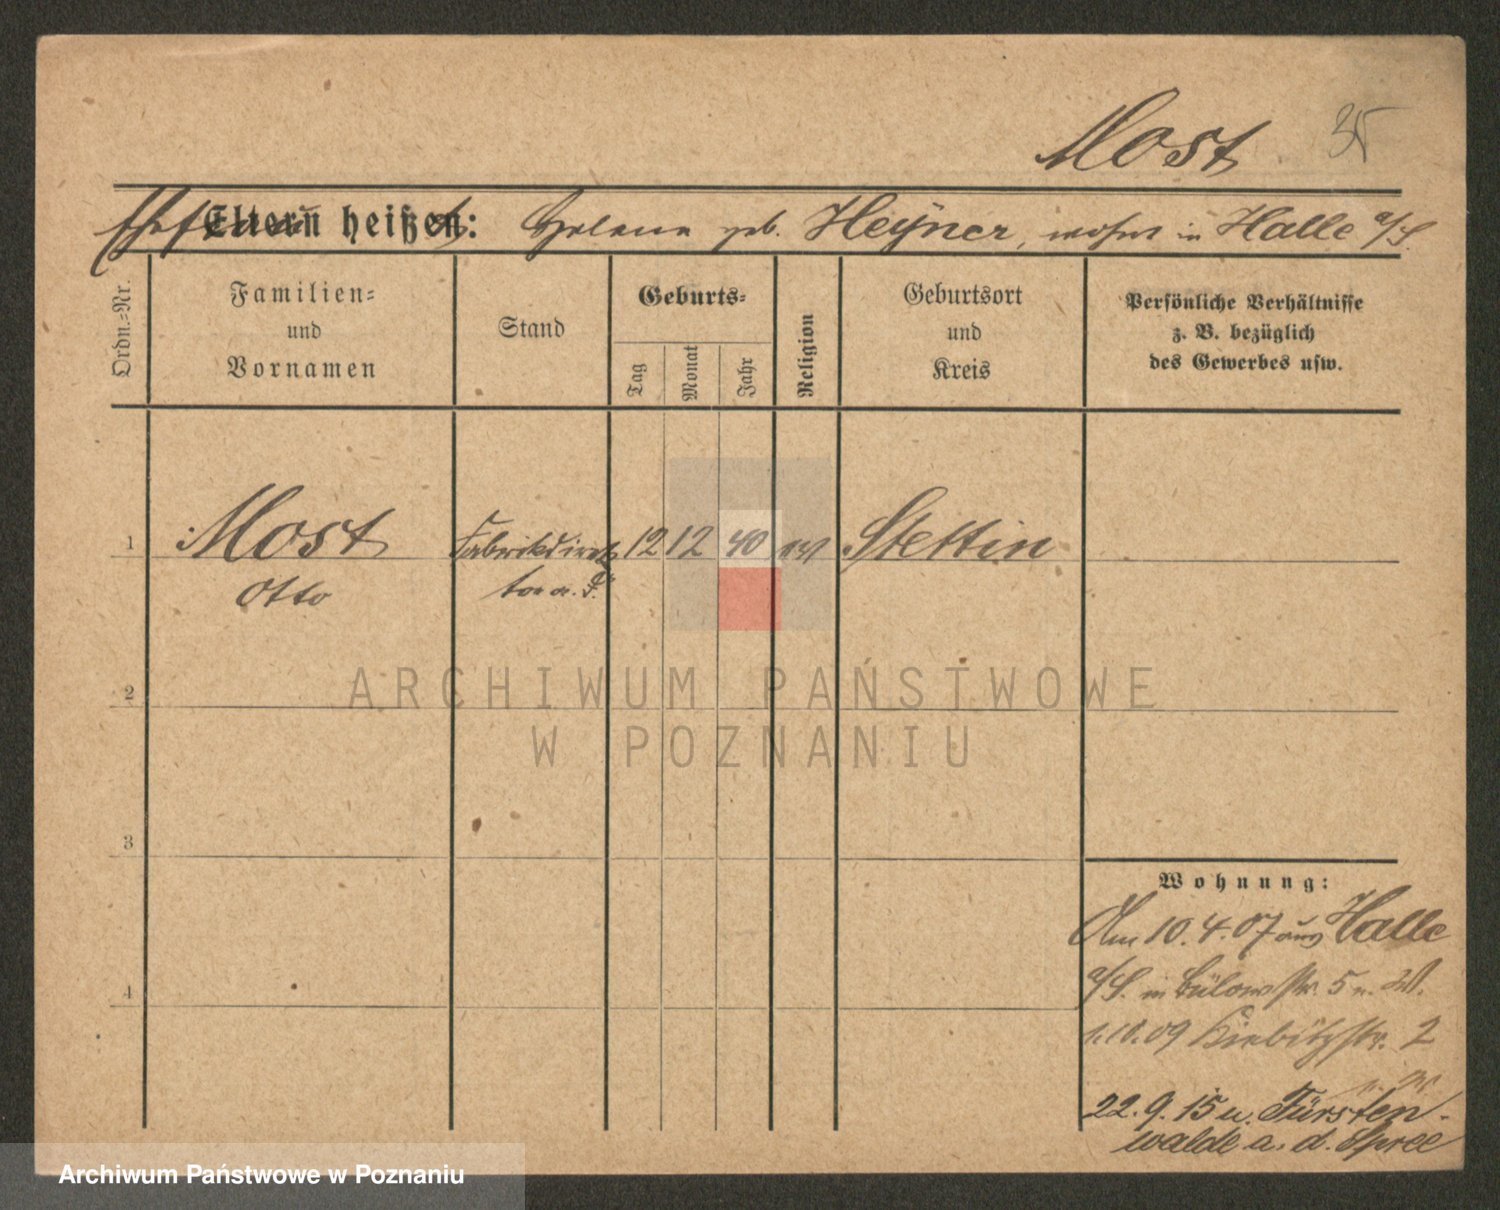 Most 35
Eltern heißen: Helene geb. Heyner, wohnt in Halle a/S.
Ordn.=Nr.
Familien=
und
Vornamen
Stand
Geburts=
Tag
Monat
Jahr
Religion
Geburtsort
und
Kreis
Persönliche Verhältnisse
z. B. bezüglich
des Gewerbes usw.
1 Most Fabrikdirek 12 12 40 ev Stettin
Otto tor a. D.
2
3
4
Wohnung:
Am 10.4.07 aus Halle
a/S. in Bülowstr. 5 n. W.
1.10.09 Kiebitzstr. 2
22.9.15 n. Fürsten-
walde a. d. Spree
ARCHIWUM PAŃSTWOWE
W POZNANIU
Archiwum Państwowe w Poznaniu